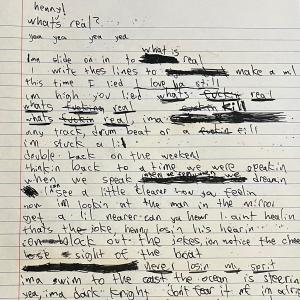 henny!
what's real?
yea yea yea yea
what is
ima slide on in to real
I write thes lines to make a mil
this time I lied I love ya still
im high you lied whats fuckin real
whats fuckin real kill
whats fuckin real, ima
any track, drum beat or a fuckin fill
im stuck a lil
double back on the weekend
thinkin back to a time we were speakin
when we speak dream
i can see a little clearer how you feelin
now im lookin at the man in the mirror
get a lil nearer can ya hear I aint healin
thats the joke, henny losin his hearin
block out the jokes, ion notice the chee
lose sight of the boat
here I losin my sprit
ima swim to the coast the ocean is steerin
yea, ima dark knight dont fear it im alrig